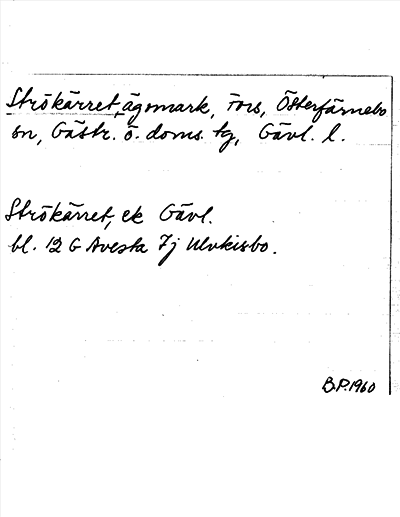 Strökärret, ägomark, Fors, Österfärnebo
sn, Gästr. ö. doms. tg, Gävl. l.
Strökärret, ek Gävl.
bl. 12 G Avesta 7j Ulvkisbo.
B.P. 1960